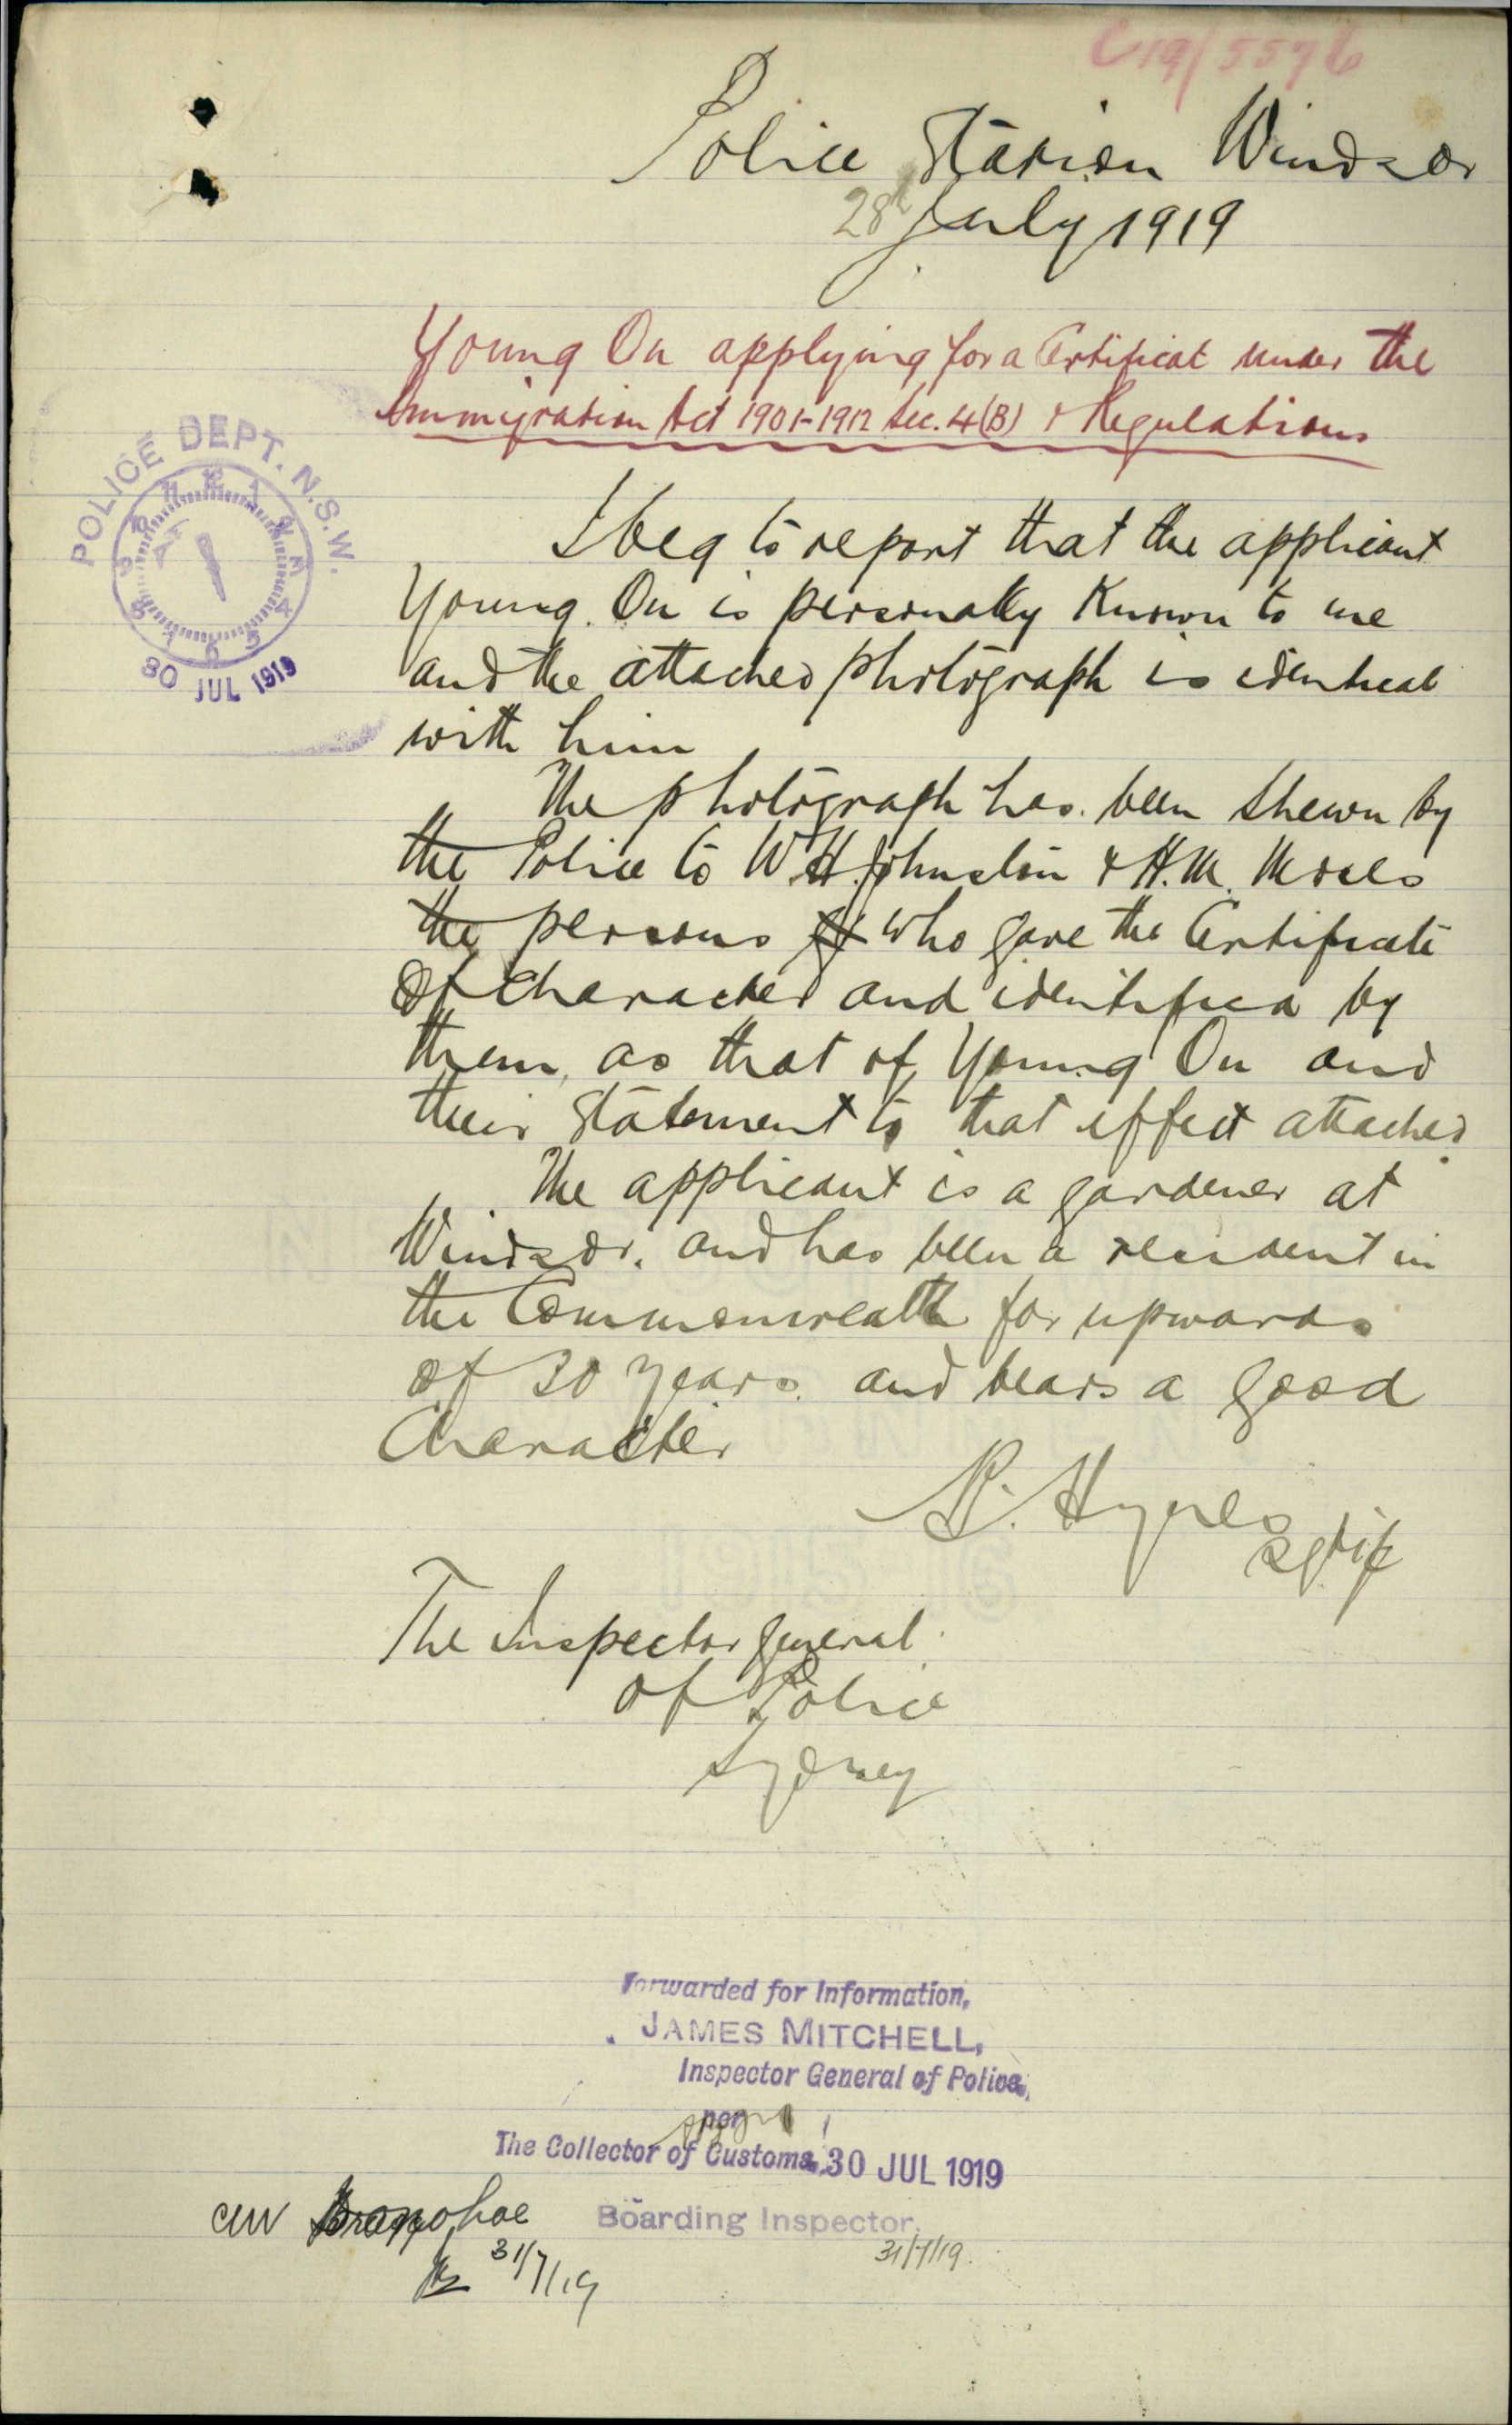 C19/5576
Police Station Windsor
28th July 1919
Young On applying for a Certificat under the
Immigration Act 1901-1912 Sec. 4(B) & Regulations
POLICE DEPT. N.S.W.
12 1 2 3 4 5 6 7 8 9 10 11
30 JUL 1919
I beg to report that the applicant
Young On is personally Known to me
and the attached photograph is identical
with him
The photograph has been shewn by
the Police to W.H. Johnston & H.M. Moses
the persons who gave the Certificate
of Character and identified by
them as that of Young On and
their Statement to that effect attached.
The applicant is a gardener at
Windsor. and has been a resident in
the Commonwealth for upwards
of 30 years and bears a good
Character
Hynes
The Inspector General
of Police
Sydney
Forwarded for Information,
JAMES MITCHELL,
Inspector General of Police,
per
The Collector of Customs. 30 JUL 1919
Boarding Inspector.
31/7/19.
31/7/19